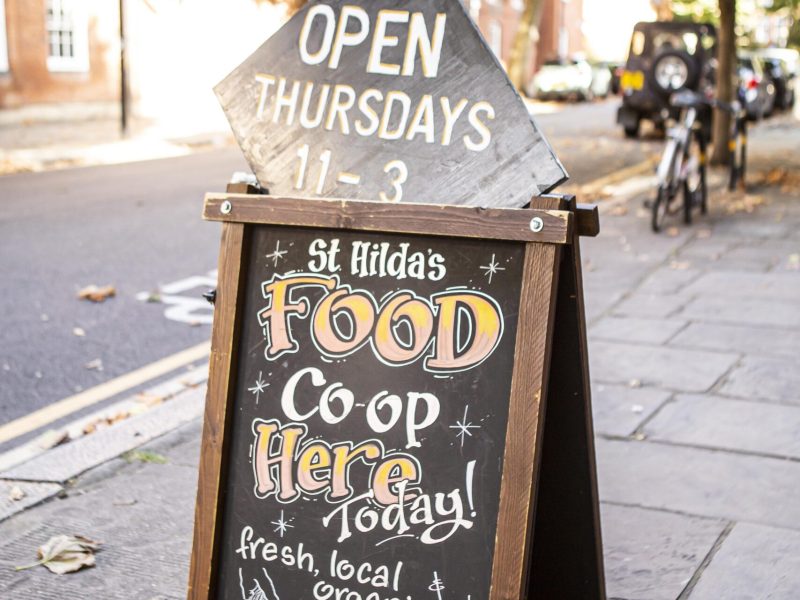 OPEN
THURSDAYS
11-3
St Hilda's
FOOD
Co-op
Here
Today!
fresh, local
organic